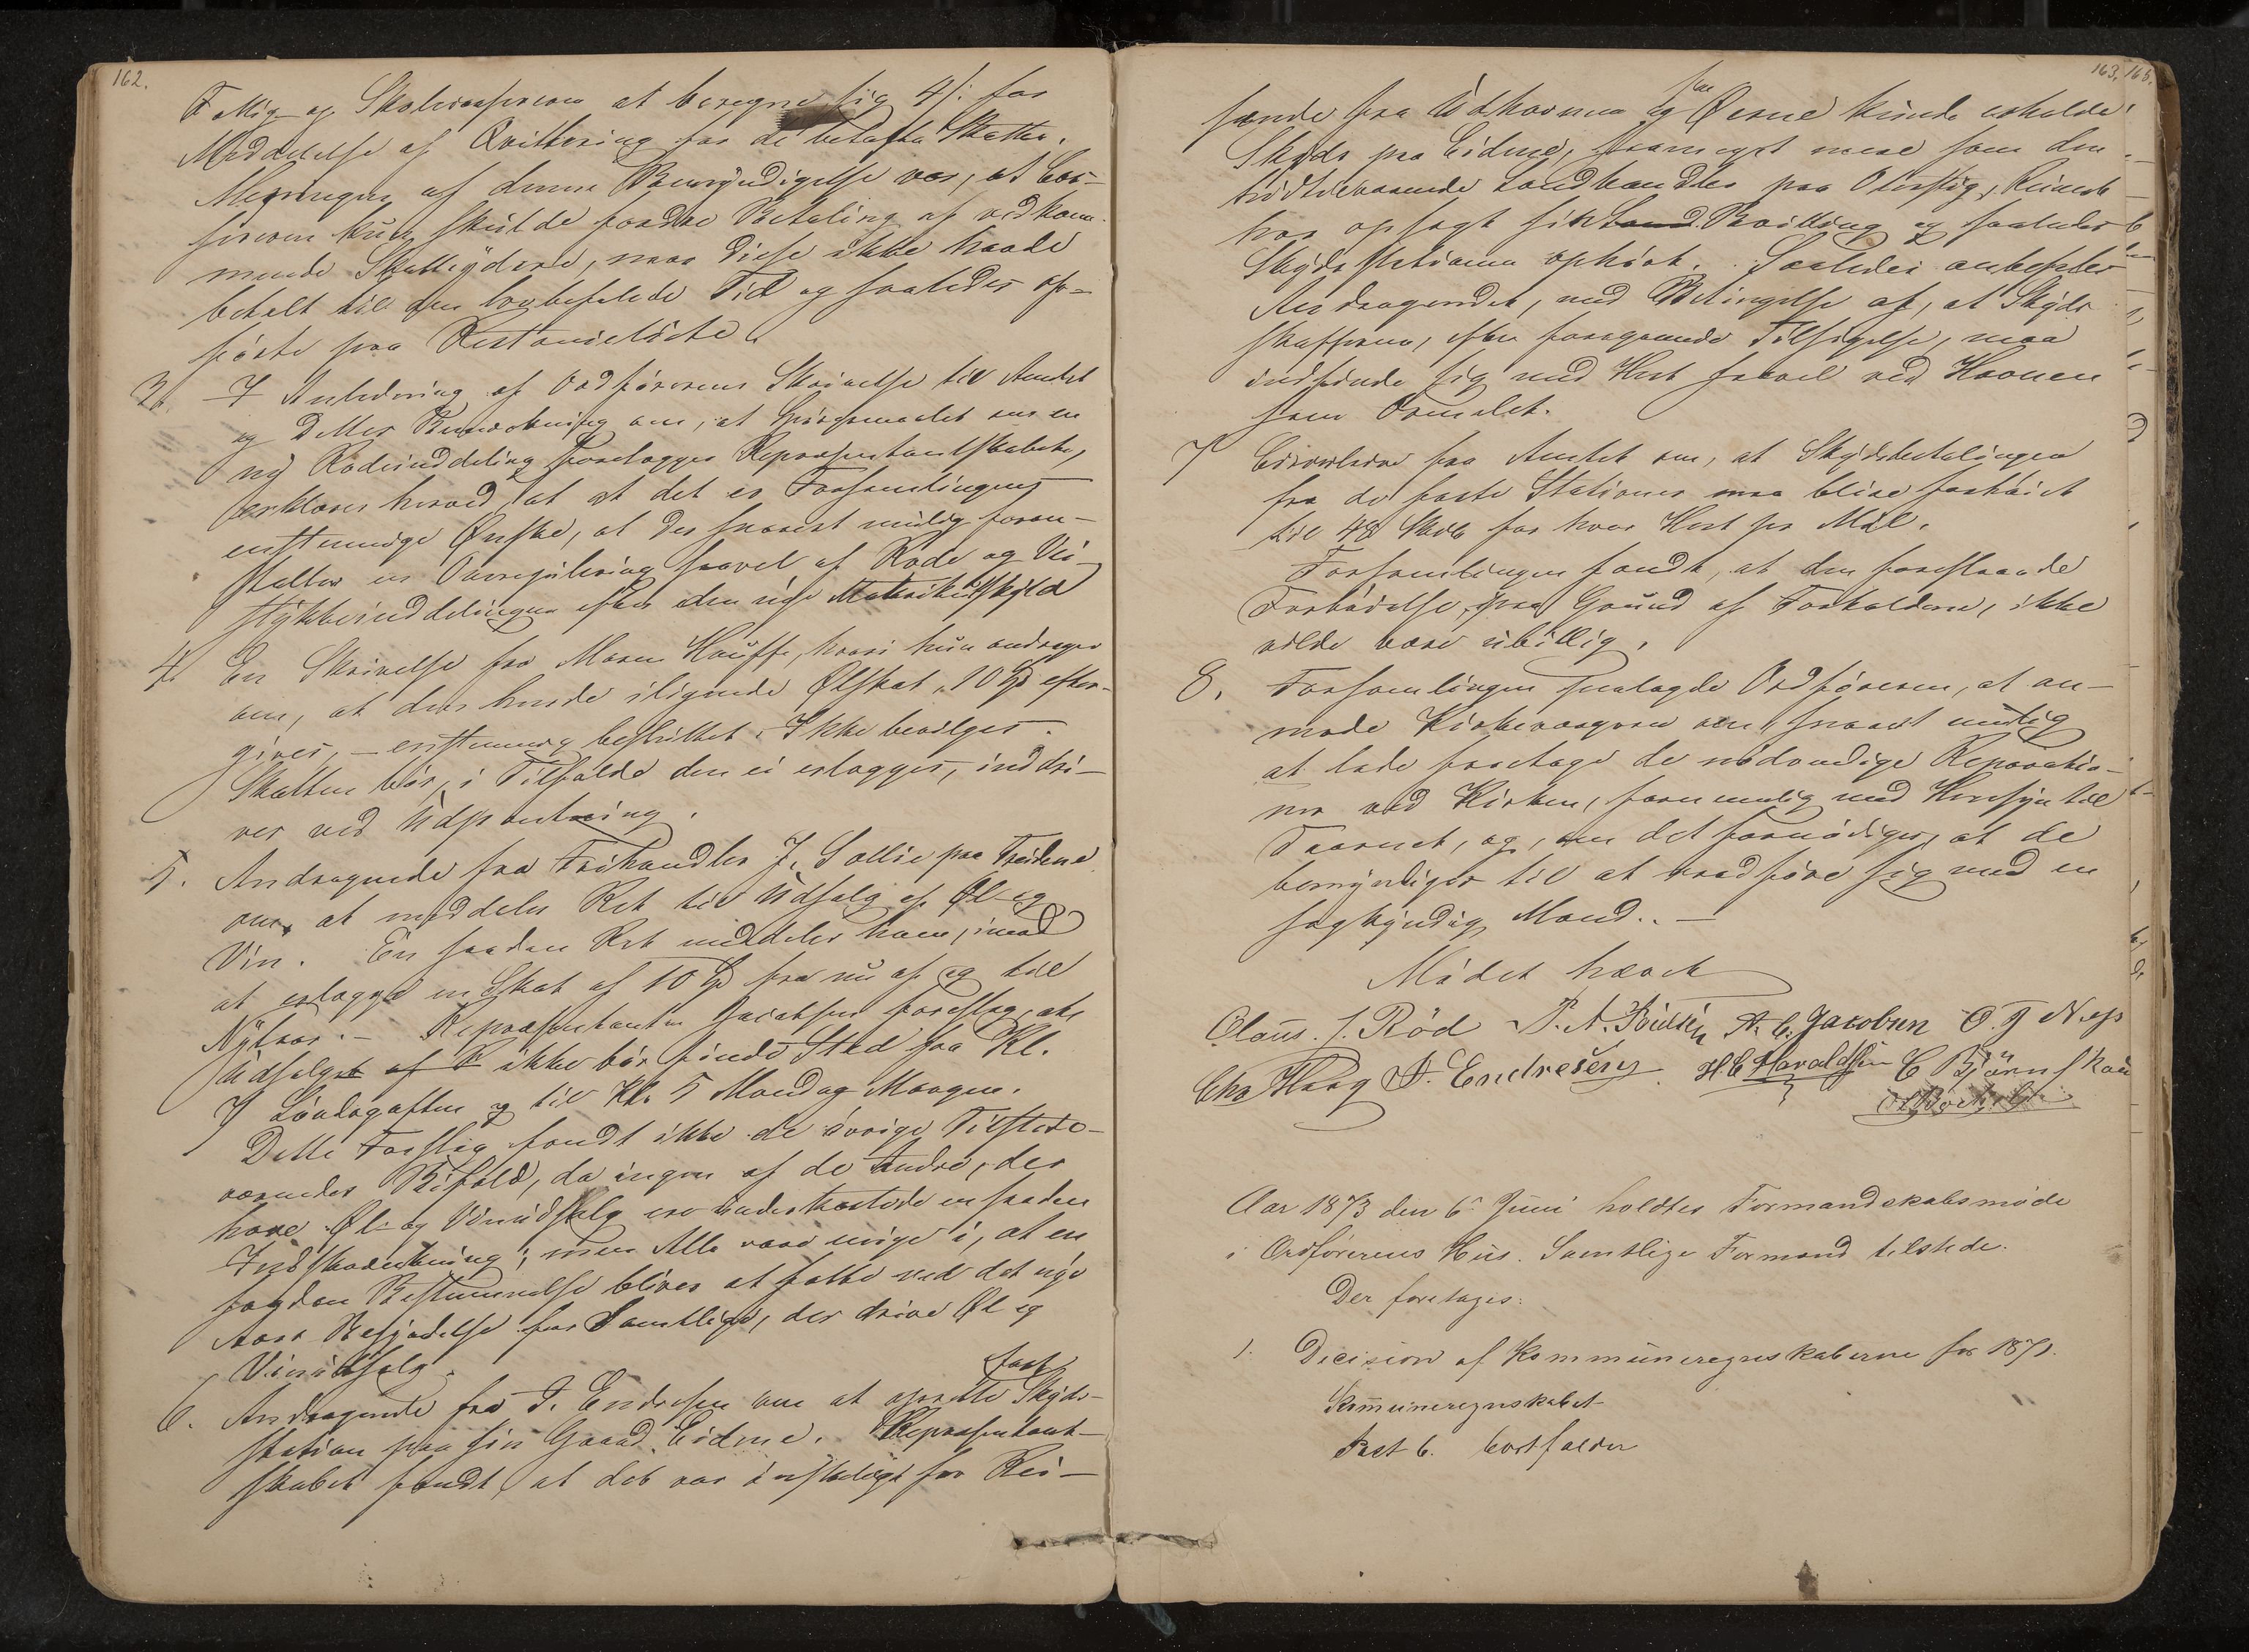 162.
Fattig- og Skolekassereren at beregne sig 4 /: for
Meddelelse af Qvittering for de betalte Skatter.
Meningen af denne Bemyndigelse var, at Cas-
sereren kun skulde fordre Betaling af vedkom-
mende Skatteydere, naar disse ikke havde
betalt til den lovbefalede Tid og saaledes op-
førte paa Restanceliste.
3. I Anledning af Ordførerens Skrivelse til Amtet
og dettes Bemærkning om, at Spørgsmaalet om en
ny Rodeinddeling forelægges Repræsentantskabet,
erklæres herved at det er Forsamlingens
enstemmige Ønske, at der snarest mulig foran-
staltes en Omregulering saavel af Rode og Vei-
stykkeinddelingen efter den nye Matrikulskyld
4. En Skrivelse fra Maren Hauff, hvori hun andrager
om, at den hende ilignede Ølskat, 10 Spd efter-
gives, - enstemmig besluttet: Ikke bevilges.
Skatten bør, i Tilfælde den ei erlægges, inddri-
ves ved Udpantning.
5. Andragende fra Frihandler J. Sollie paa
om, at meddeles Ret til Udsalg af Øl og
Vin. En saadan Ret meddeles ham, imod
at erlægge en Skat af 10 Spd fra nu af og til
Nytaar. - Repræsentanten Jacobsen foreslog, at
Udsalget af ikke bør finde Sted fra Kl.
7 Løverdagaften og til Kl. 5 Mandag Morgen.
Dette Forslag fandt ikke de øvrige Tilstede-
værendes Bifald, da ingen af de Andre, der
have Øl- og Vinudsalg ere underkastede en saadan
Indskrænkning; men Alle vare enige i, at en
saadan Bestemmelse bliver at fatte ved det nye
Aars Begyndelse for Samtlige, der drive Øl og
Vinudsalg.
6. Andragende fra I. Endresen om at oprette fast Skyds-
station paa sin Gaard Eidene. Repræsentant-
skabet fandt, at det var ønskeligt for Rei-
163. 165.
sende fra Udhavnen og fra Øerne kunde erholde
Skyds paa Eidene, saameget mere som den
hidtilværende Landhandler paa
har opsagt sin Bevilling og saaledes
Skydsstationen ophørt. Saaledes anbefales
Andragendet, med Betingelse af, at Skyds-
skafferen, efter foregaaende Tilsigelse, maa
indfinde sig med Hest saavel ved Havnen
som Ormelet.
7 Circulære fra Amtet om, at Skydsbetalingen
fra de faste Stationer maa blive forhøiet
til 48 Skill for hver Hest pr Mil.
Forsamlingen fandt, at den foreslaaede
Forhøielse, paa Grund af Forholdene, ikke
vilde være ubillig.
8. Forsamlingen paalagde Ordføreren, at an-
mode Kirkeværgerne om snarest mulig
at lade foretage de nødvendige Reparatio-
ner ved Kirken, fornemmelig med Hensyn til
Taarnet, og, om det fornødiges, at de
bemyndiges til at raadføre sig med en
sagkyndig Mand. -
Mødet hævet
Claus. J. Röd P. A. Poulsen A. C. Jacobsen O. T Næs
Chr Haag A. Endresen H C Haraldsen C Bjørnskau
Aar 1873 den 6te Juni holdtes Formandskabsmøde
i Ordførerens Hus. Samtlige Formænd tilstede.
Der foretages:
1. Decision af Kommuneregnskaberne for 1871.
Kommuneregnskabet
Post 6. bortfalder